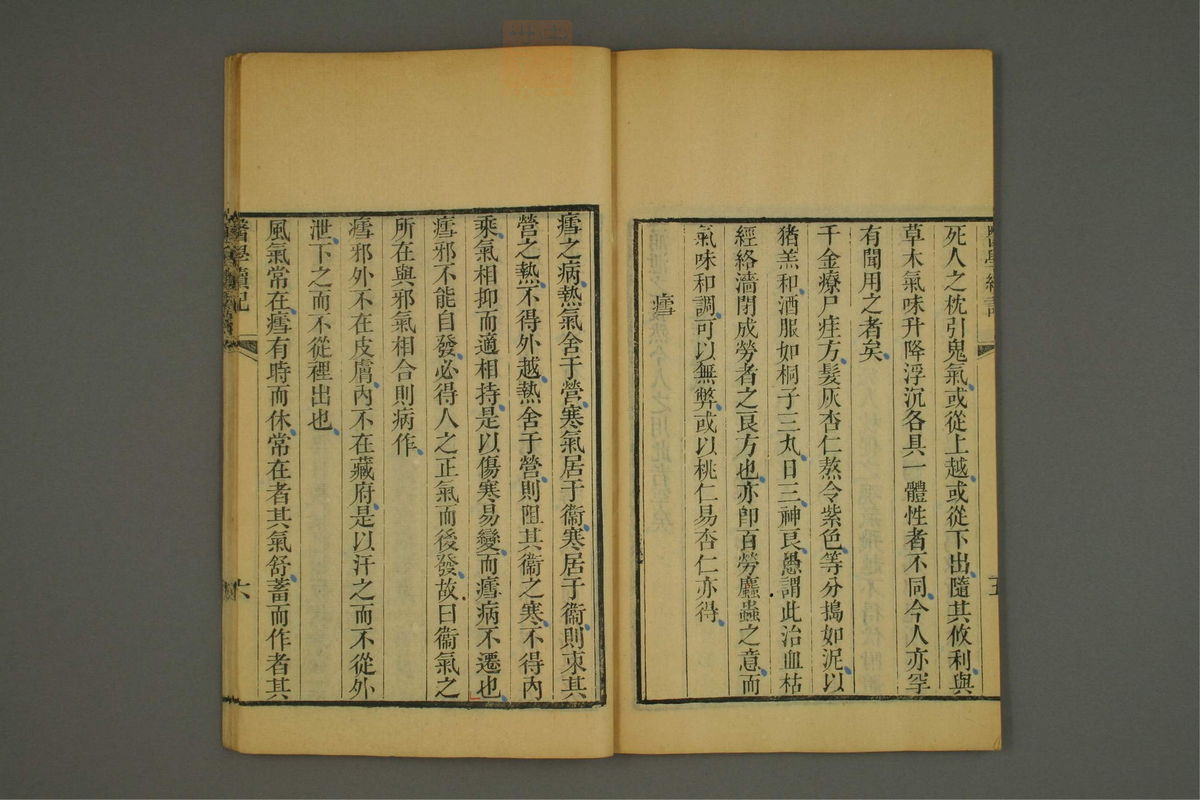 死人之枕引鬼氣或從上越或從下出隨其攸利與
草木氣味升降浮沉各具一體性者不同今人亦罕
有聞用之者矣
千金療尸疰方髮灰杏仁熬令紫色等分搗如泥以
猪羔和酒服如桐子三丸日三神良愚謂此治血枯
經絡濇閉成勞者之良方也亦卽百勞䗪蟲之意而
氣味和調可以無弊或以桃仁易杏仁亦得
瘧
五
瘧之病熱氣舍于營寒氣居于衞寒居于衞則束其
營之熱不得外越熱舍于營則阻其衞之寒不得內
乘氣相抑而適相持是以傷寒易變而瘧病不遷也
瘧邪不能自發必得人之正氣而後發故曰衞氣之
所在與邪氣相合則病作
瘧邪外不在皮膚內不在藏府是以汗之而不從外
泄下之而不從裡出也
風氣常在瘧有時而休常在者其氣舒蓄而作者其
醫學讀記
六